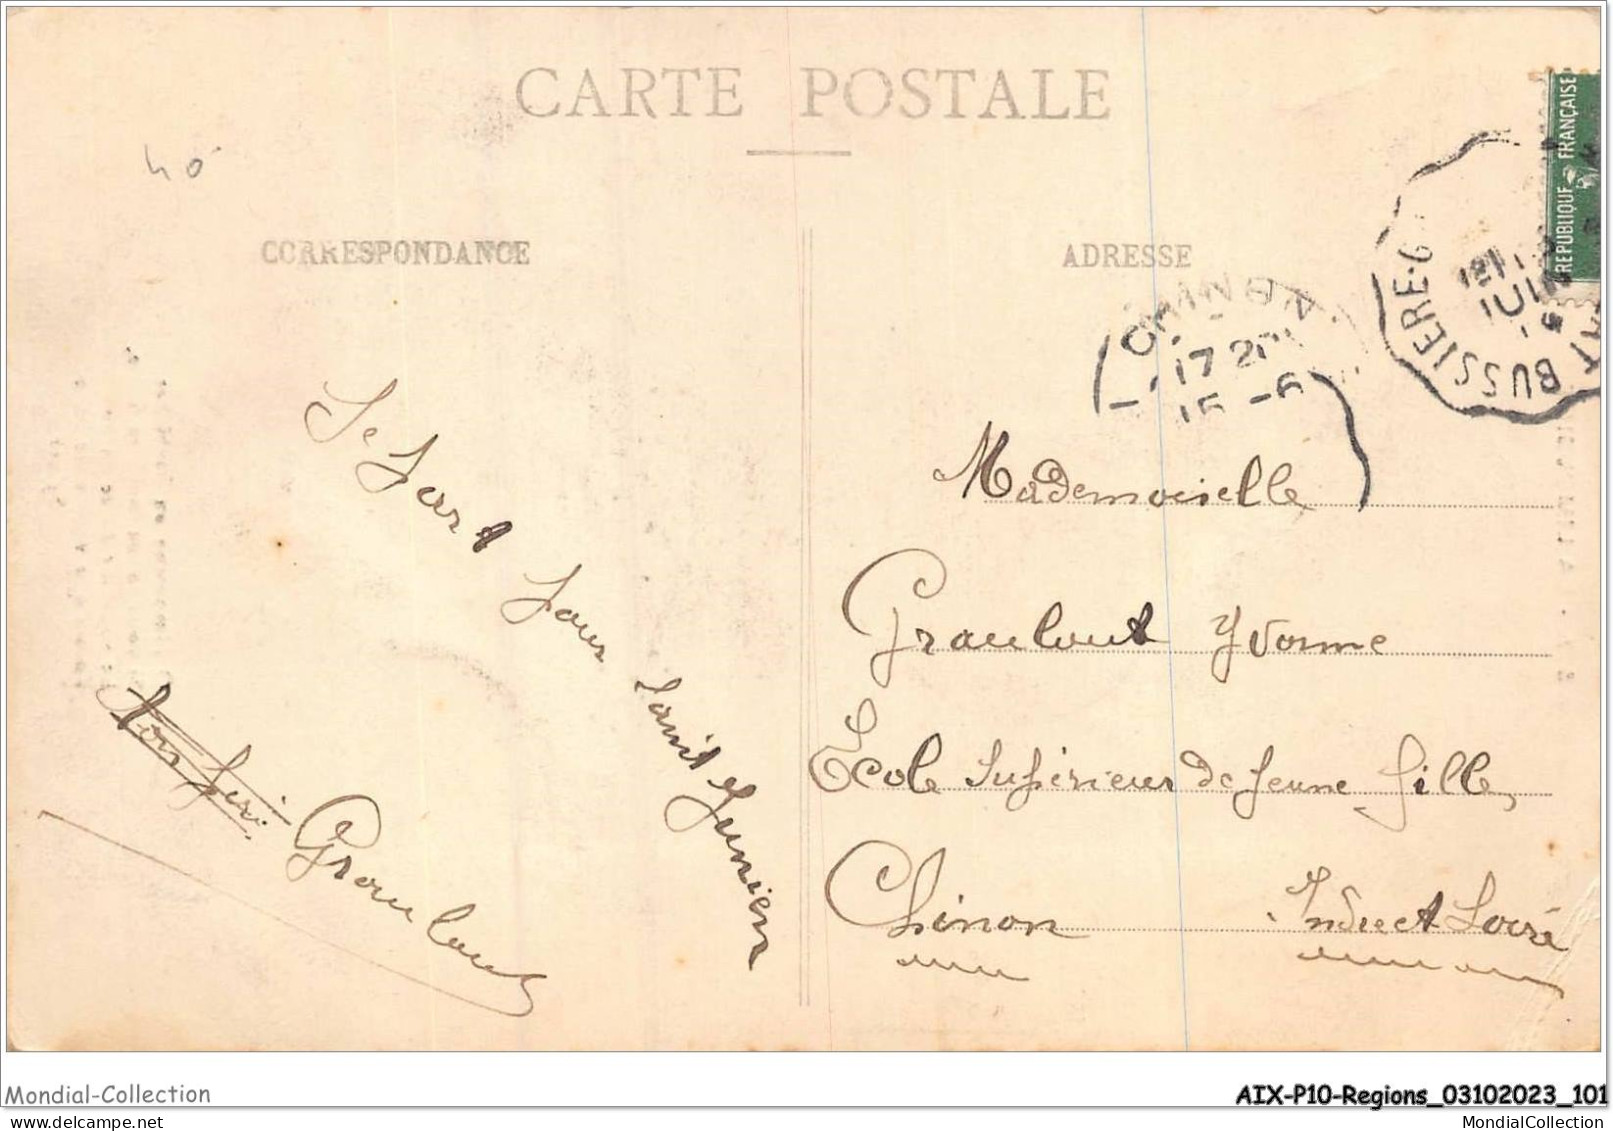 CARTE POSTALE
40
CORRESPONDANCE
ADRESSE
REPUBLIQUE FRANÇAISE
BUSSIERE-G
CHINON
17 20
15 -6
Mademoiselle
Graulout Yvonne
Ecole Supérieur de Jeune fille
Chinon Indre et Loire
Je part pour
Saint Junien
Ton
Graulout
Mondial-Collection
AIX-P10-Regions_03102023_101
https://www.delcampe.net
MondialCollection